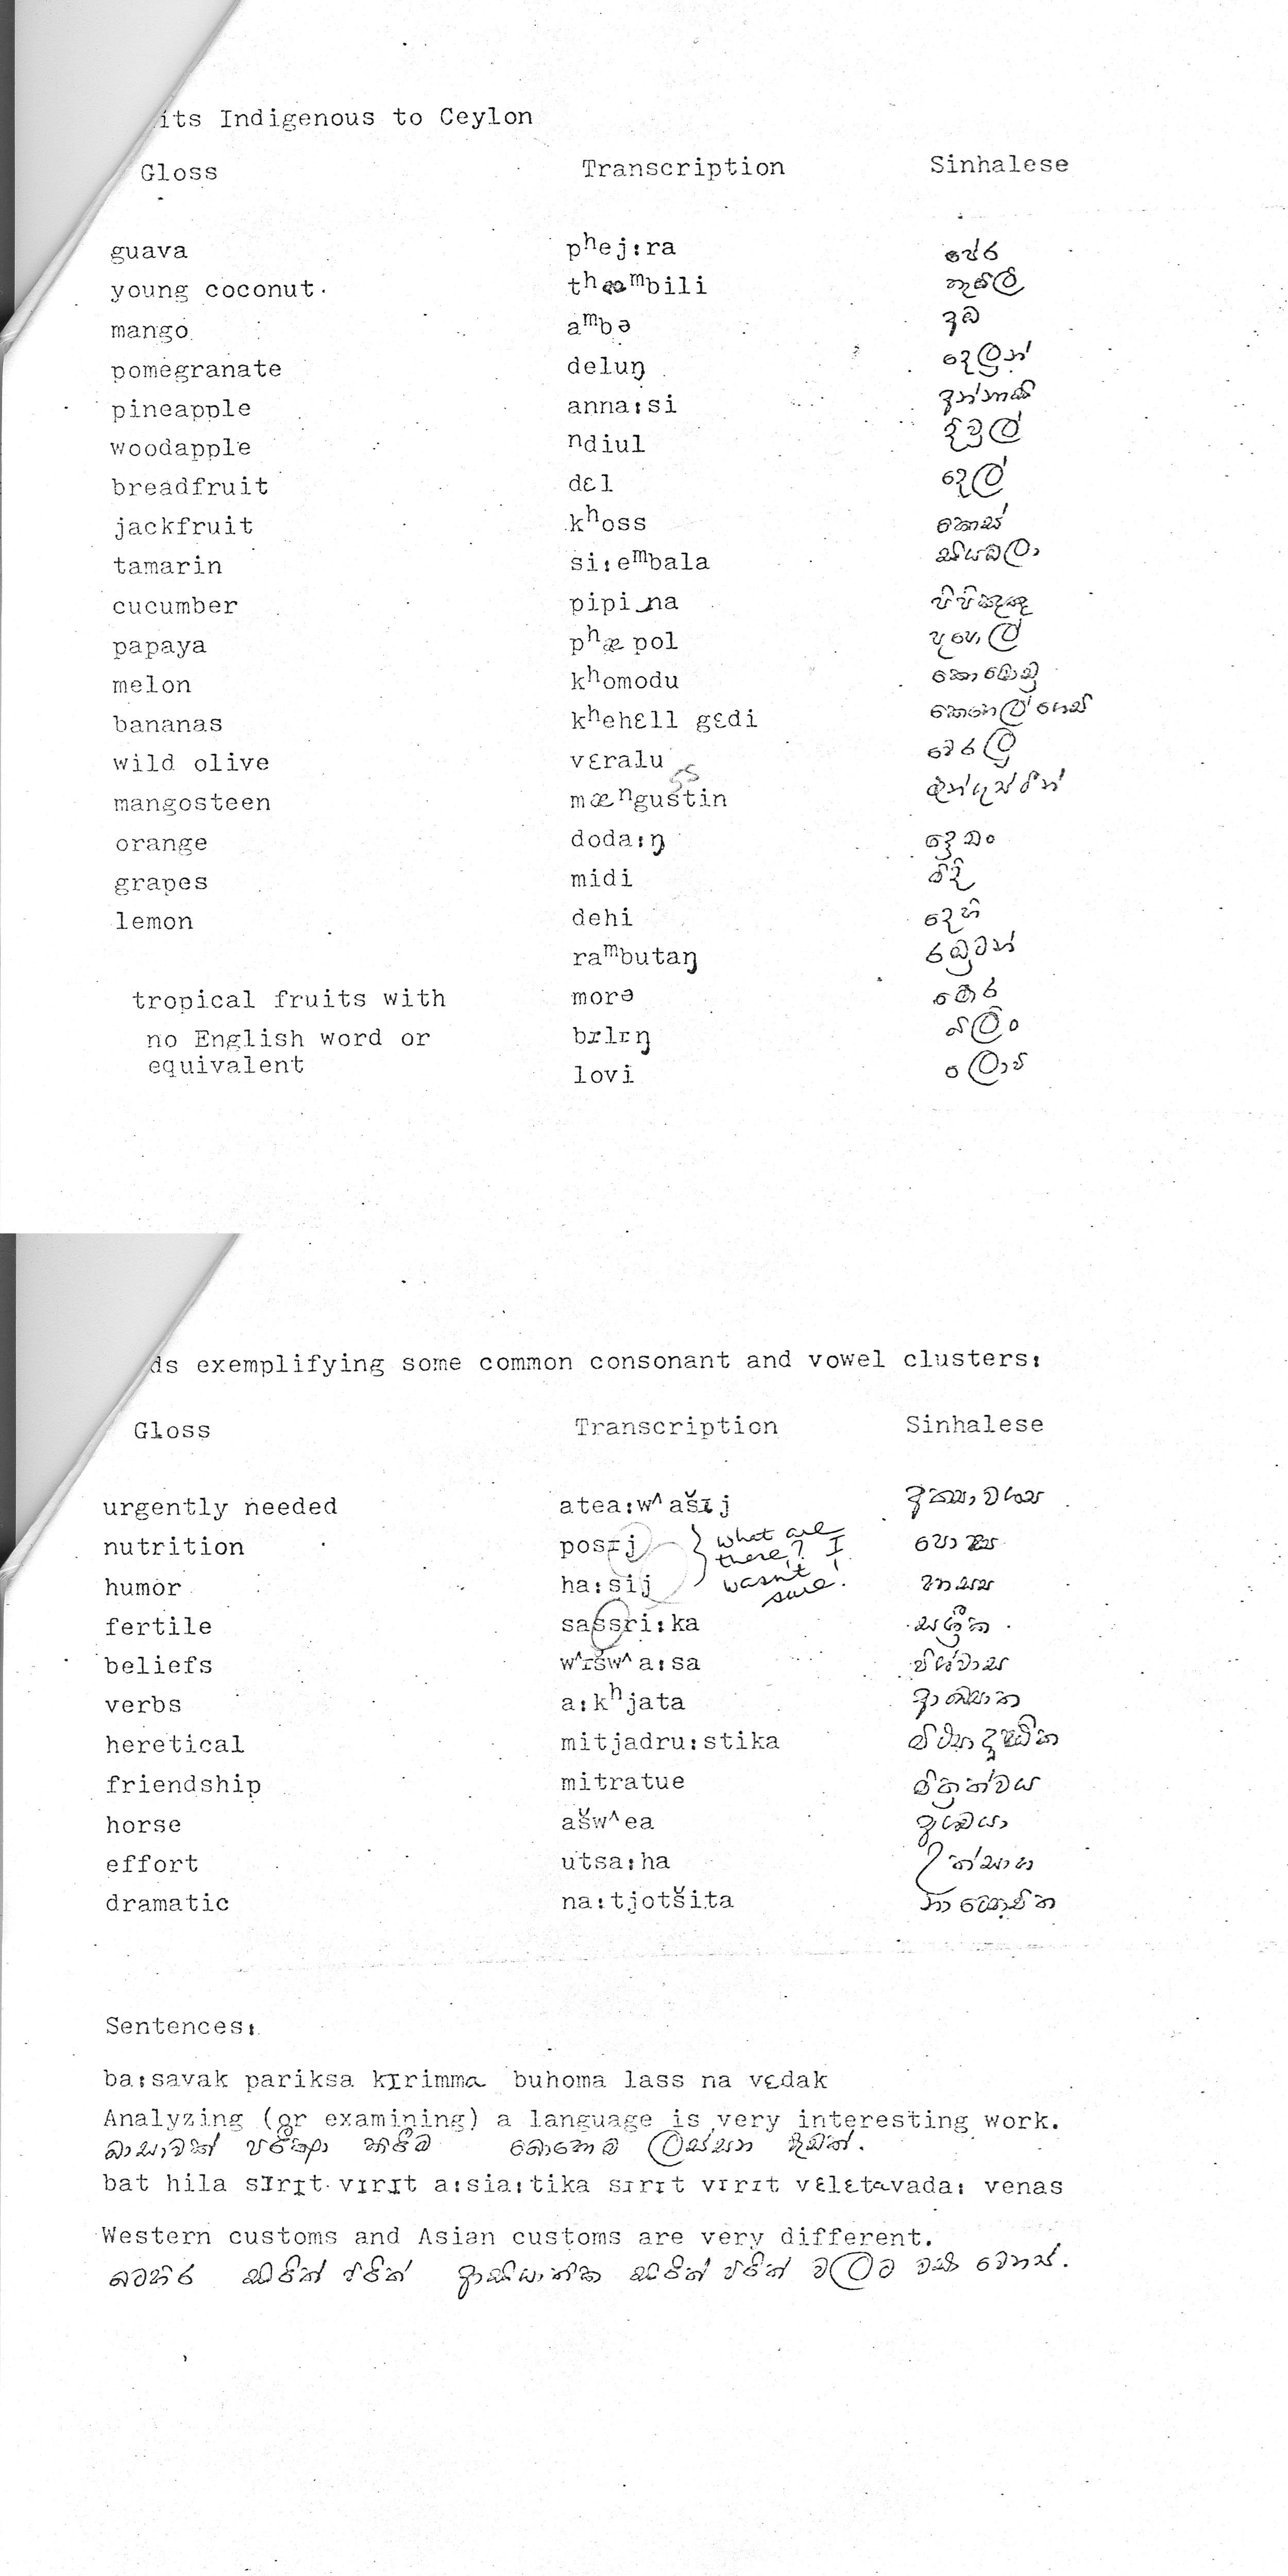 its Indigenous to Ceylon
Gloss Transcription Sinhalese
guava pʰej:ra පේර
young coconut. tʰæᵐbili තැඹිලි
mango aᵐbə අඹ
pomegranate deluŋ දෙලුන්
pineapple anna:si අන්නාසි
woodapple ⁿdiul දිවුල්
breadfruit dɛl දෙල්
jackfruit kʰoss කොස්
tamarin si:eᵐbala සියඹලා
cucumber pipi_na පිපිඤ්ඤ
papaya pʰæ pol පැපොල්
melon kʰomodu කොමොඩු
bananas kʰehɛll gɛdi කෙහෙල් ගෙඩි
wild olive vɛralu වෙරලු
mangosteen mæⁿgustin මැන්ගුස්ටින්
orange doda:ŋ දොඩං
grapes midi මිදි
lemon dehi දෙහි
raᵐbutaŋ රඹුටන්
tropical fruits with morə මොර
no English word or bɪlɪŋ බිලිං
equivalent
lovi ලොවි
ds exemplifying some common consonant and vowel clusters:
Gloss Transcription Sinhalese
urgently needed atea:w^ašɪj අත්‍යාවශ්‍ය
nutrition posɪj } what are පෝෂ්‍ය
there? I
humor ha:sij wasn't හාස්‍ය
sure!
fertile sassri:ka සශ්‍රීක
beliefs w^ɪšw^a:sa විශ්වාස
verbs a:kʰjata ආඛ්‍යාත
heretical mitjadru:stika මිථ්‍යාදෘෂ්ඨික
friendship mitratue මිත්‍රත්වය
horse ašw^ea අශ්වයා
effort utsa:ha උත්සාහ
dramatic na:tjotšita නාට්‍යෝචිත
Sentences:
ba:savak pariksa kɪrimma buhoma lass na vɛdak
Analyzing (or examining) a language is very interesting work.
භාසාවක් පරීක්ෂා කිරීම බොහොම ලස්සන වැඩක්.
bat hila sɪrɪt vɪrɪt a:sia:tika sɪrɪt vɪrɪt vɛlɛtavada: venas
Western customs and Asian customs are very different.
බටහිර සිරිත් විරිත් ආසියාතික සිරිත් විරිත් වලට වඩා වෙනස්.